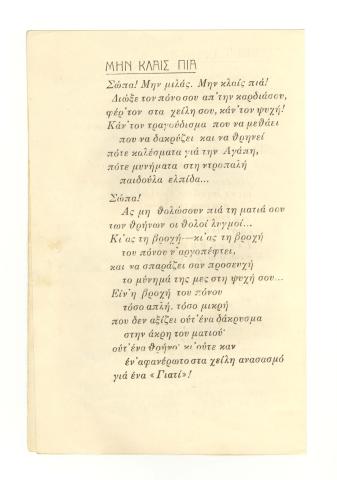 ΜΗΝ ΚΛΑΙΣ ΠΙΑ
Σώπα! Μην μιλάς. Μην κλαίς πιά!
Διώξε τον πόνο σου απ' την καρδιά σου,
φέρ' τον στα χείλη σου, κάν' τον ψυχή!
Κάν' τον τραγούδισμα που να μεθάει
που να δακρύζει και να θρηνεί
πότε καλέσματα γιά την Αγάπη,
πότε μυνήματα στη ντροπαλή
παιδούλα ελπίδα...
Σώπα!
Ας μη θολώσουν πιά τη ματιά σου
των θρήνων οι θολοί λυγμοί...
Κι' ας τη βροχή—κι' ας τη βροχή
του πόνου ν' αργοπέφτει,
και να σπαράζει σαν προσευχή
το μύνημά της μες στη ψυχή σου...
Είν' η βροχή του πόνου
τόσο απλή, τόσο μικρή
που δεν αξίζει ούτ' ένα δάκρυσμα
στην άκρη του ματιού·
ούτ' ένα θρήνο· κι' ούτε καν
έν' αφανέρωτο στα χείλη ανασασμό
γιά ένα «Γιατί»!